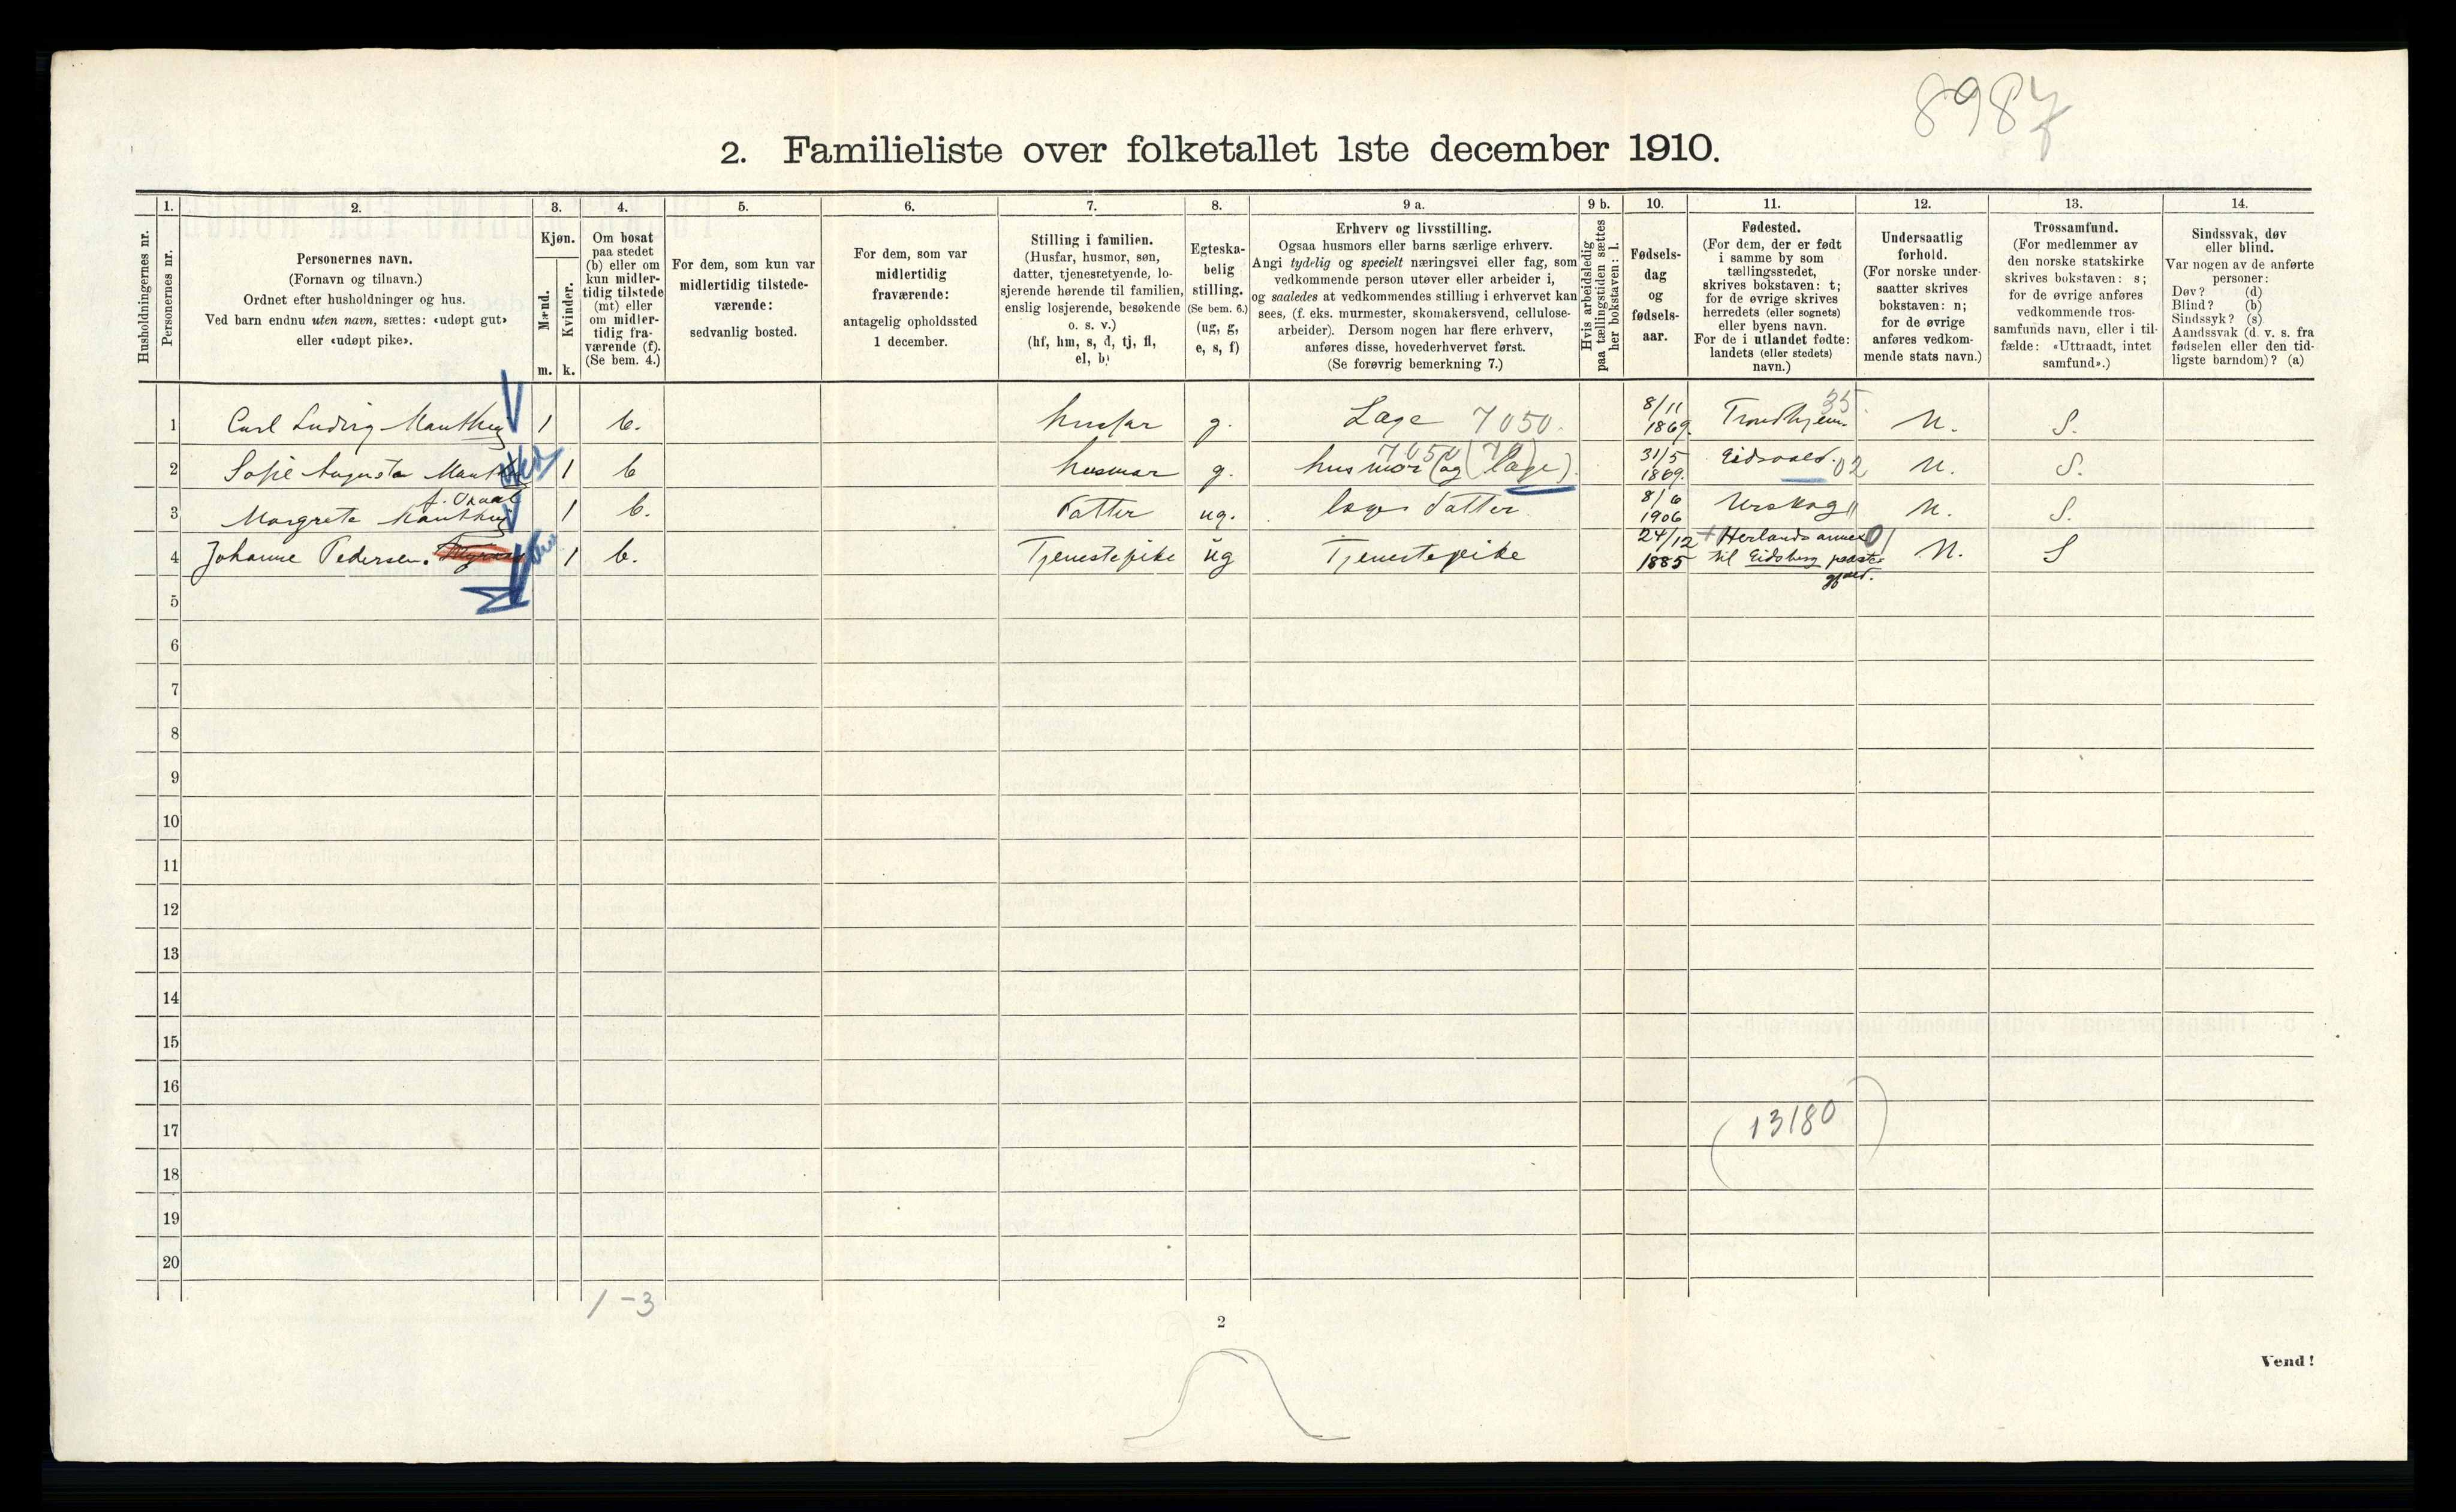 8987
2. Familieliste over folketallet 1ste december 1910.
Husholdningernes nr.
1.
Personernes nr.
2.
Personernes navn.
(Fornavn og tilnavn.)
Ordnet efter husholdninger og hus.
Ved barn endnu uten navn, sættes: «udøpt gut»
eller «udøpt pike».
3.
Kjøn.
Mænd.
Kvinder.
m. k.
4.
Om bosat
paa stedet
(b) eller om
kun midler-
tidig tilstede
(mt) eller
om midler-
tidig fra-
værende (f).
(Se bem. 4.)
5.
For dem, som kun var
midlertidig tilstede-
værende:
sedvanlig bosted.
6.
For dem, som var
midlertidig
fraværende:
antagelig opholdssted
1 december.
7.
Stilling i familien.
(Husfar, husmor, søn,
datter, tjenestetyende, lo-
sjerende hørende til familien,
enslig losjerende, besøkende
o. s. v.)
(hf, hm, s, d, tj, fl,
el, b)
8.
Egteska-
belig
stilling.
(Se bem. 6.)
(ug, g,
e, s, f)
9 a.
Erhverv og livsstilling.
Ogsaa husmors eller barns særlige erhverv.
Angi tydelig og specielt næringsvei eller fag, som
vedkommende person utøver eller arbeider i,
og saaledes at vedkommendes stilling i erhvervet kan
sees, (f. eks. murmester, skomakersvend, cellulose-
arbeider). Dersom nogen har flere erhverv,
anføres disse, hovederhvervet først.
(Se forøvrig bemerkning 7.)
9 b.
Hvis arbeidsledig
paa tællingstiden sættes
her bokstaven: l.
10.
Fødsels-
dag
og
fødsels-
aar.
11.
Fødested.
(For dem, der er født
i samme by som
tællingsstedet,
skrives bokstaven: t;
for de øvrige skrives
herredets (eller sognets)
eller byens navn.
For de i utlandet fødte:
landets (eller stedets)
navn.)
12.
Undersaatlig
forhold.
(For norske under-
saatter skrives
bokstaven: n;
for de øvrige
anføres vedkom-
mende stats navn.)
13.
Trossamfund.
(For medlemmer av
den norske statskirke
skrives bokstaven: s;
for de øvrige anføres
vedkommende tros-
samfunds navn, eller i til-
fælde: «Uttraadt, intet
samfund».)
14.
Sindssvak, døv
eller blind.
Var nogen av de anførte
personer:
Døv? (d)
Blind? (b)
Sindssyk? (s)
Aandssvak (d. v. s. fra
fødselen eller den tid-
ligste barndom)? (a)
1 Carl Ludvig Manthey 1 b. husfar g. Læge 7050. 8/11 1869. Trondhjem. 35. N. S.
2 Sofie Augusta Manthey 1 b husmor g. husmor (og læge). 7050 31/5 1869. Eidsvold. 02 N. S.
3 Margrete Manthey 1 b. Datter ug. læges datter 8/6 1906 Urskog N. S.
4 Johanne Pedersen. 1 b. Tjenestepike ug Tjenestepike 24/12 1885 + Herlands annex til Eidsberg præste gjæld. 01 N. S
5
6
7
8
9
10
11
12
13
14
15
16
17
18
19
20
(13180)
1-3
2
Vend!